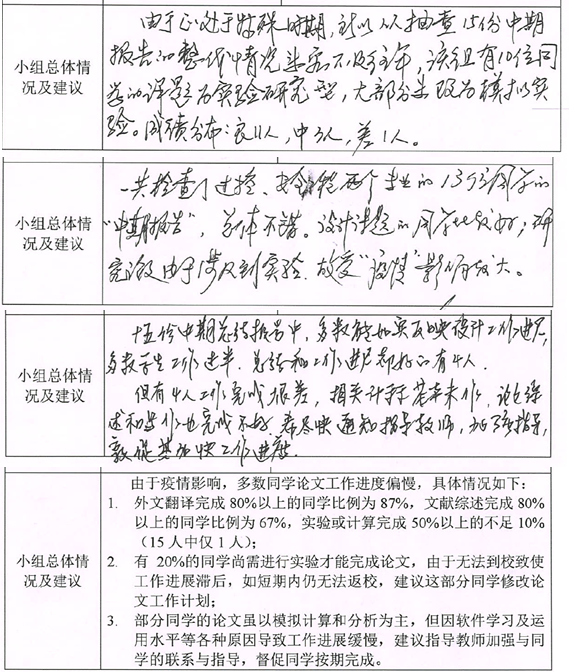 小组总体情
况及建议
由于正处于特殊时期,所以从抽查15份中期
报告的整体情况来看不及往年,该组有10位同
学的课题为实验研究型,大部分要改为模拟实
验。成绩分布:良11人,中3人,差1人。
小组总体情
况及建议
一共检查了过控、安全工程两个专业的13位同学的
“中期报告”,总体不错。设计课题的同学比较好;研
究课题由于涉及到实验,故受“疫情”影响较大。
小组总体情
况及建议
十五份中期总结报告中,多数能如实反映设计工作进展,
多数学生工作过半,总结和工作进展都好的有4人.
但有4人工作完成很差,相关计算基本未作,论文综
述和异作也完成不好,希尽快通知指导教师,加强指导,
敦促其加快工作进度.
小组总体情
况及建议
由于疫情影响,多数同学论文工作进度偏慢,具体情况如下:
1. 外文翻译完成 80%以上的同学比例为 87%,文献综述完成 80%
以上的同学比例为 67%,实验或计算完成 50%以上的不足 10%
(15 人中仅 1 人);
2. 有 20%的同学尚需进行实验才能完成论文,由于无法到校致使
工作进展滞后,如短期内仍无法返校,建议这部分同学修改论
文工作计划;
3. 部分同学的论文虽以模拟计算和分析为主,但因软件学习及运
用水平等各种原因导致工作进展缓慢,建议指导教师加强与同
学的联系与指导,督促同学按期完成。